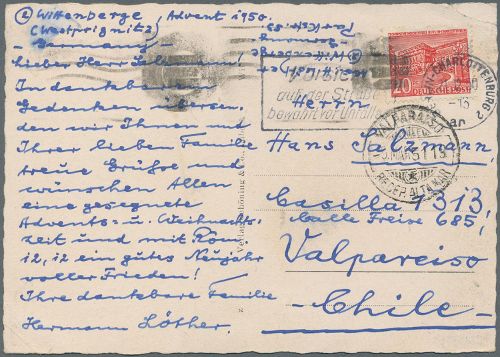 ② Wittenberge, Advent 1950.
(Westprignitz)
Germany
Lieber Herr Salzmann!
In dankbarem
Gedenken übersen-
den wir Ihnen und
Ihrer lieben Familie
treue Grüße und
wünschen Allen
eine gesegnete
Advents- u. Weihnachts-
zeit und mit Röm.
12,12 ein gutes Neujahr
voller Frieden!
Ihre dankbare Familie
Hermann Löther.
Verlag Schöning &
auf der Straße
bewahrt vor Unfall
CHARLOTTENBURG 2
20
DEUTSCHE POST
VALPARAISO
Herrn
Hans Salzmann
Casilla 1313,
Calle Freire 685,
Valparaiso
Chile